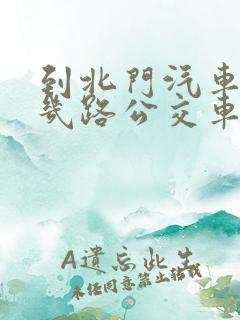 到北門汽車
幾路公交車
A遺忘此生
未经同意禁止转载